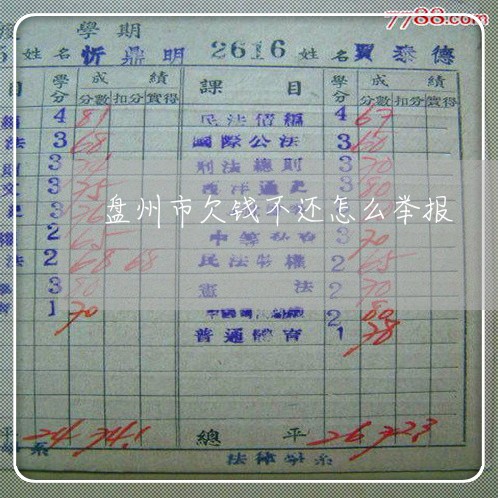 7788.com
學期
姓名 忻鼎明 2616 姓名 賈泰德
目 學分 成績 課目 學分 成績
分數 扣分 實得 分數 扣分 實得
4 81 民法債編 4 67
法 3 68 國際公法 3 60
3 刑法總則 3 70
3 75 西洋通史 3 80
盘州市欠钱不还怎么举报
2 65 3 70
法 2 68 68 民法物權 2 65
3 80 憲法 2 70
1 70 2 80
普通體育 1 78
平 24 74.1 總平 26 72.3
系 法律學系